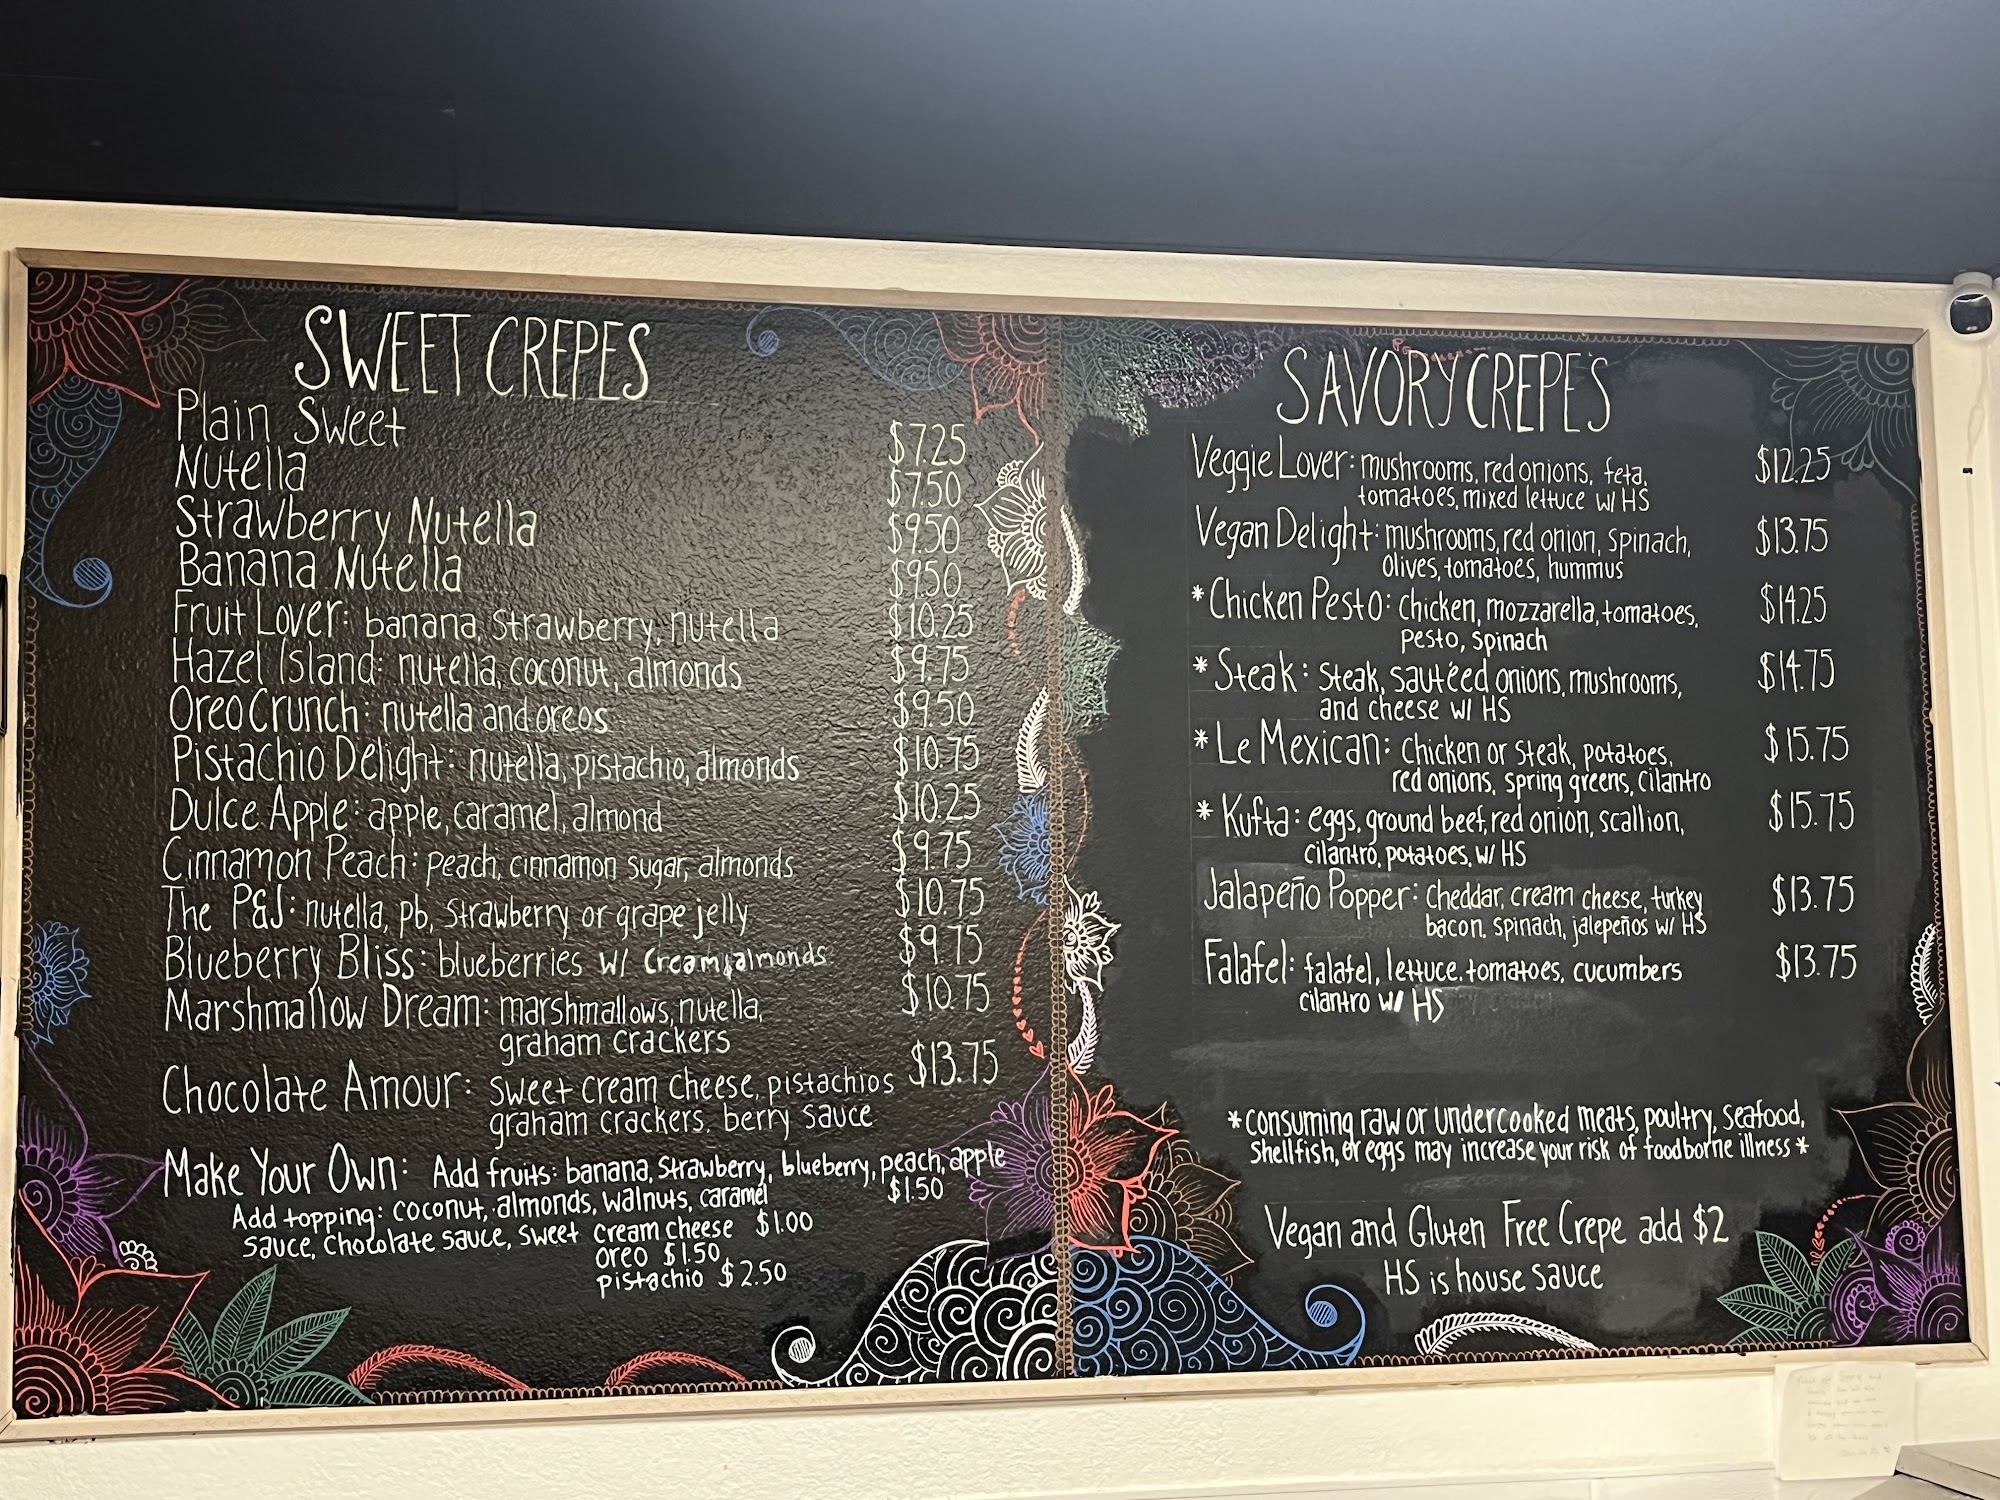 SWEET CREPES
Plain Sweet $7.25
Nutella $7.50
Strawberry Nutella $9.50
Banana Nutella $9.50
Fruit Lover: banana, strawberry, nutella $10.25
Hazel Island: nutella, coconut, almonds $9.75
Oreo Crunch: nutella and oreos $9.50
Pistachio Delight: nutella, pistachio, almonds $10.75
Dulce Apple: apple, caramel, almond $10.25
Cinnamon Peach: peach, cinnamon sugar, almonds $9.75
The P&J: nutella, pb, strawberry or grape jelly $10.75
Blueberry Bliss: blueberries w/ cream, almonds $9.75
Marshmallow Dream: marshmallows, nutella, $10.75
graham crackers
Chocolate Amour: sweet cream cheese, pistachios $13.75
graham crackers, berry sauce
Make Your Own: Add fruits: banana, strawberry, blueberry, peach, apple
$1.50
Add topping: coconut, almonds, walnuts, caramel
sauce, chocolate sauce, sweet cream cheese $1.00
oreo $1.50
pistachio $2.50
SAVORY CREPE'S
Veggie Lover: mushrooms, red onions, feta, $12.25
tomatoes, mixed lettuce w/ HS
Vegan Delight: mushrooms, red onion, spinach, $13.75
olives, tomatoes, hummus
*Chicken Pesto: chicken, mozzarella, tomatoes, $14.25
pesto, spinach
*Steak: steak, sautéed onions, mushrooms, $14.75
and cheese w/ HS
*Le Mexican: chicken or steak, potatoes, $15.75
red onions, spring greens, cilantro
*Kufta: eggs, ground beef, red onion, scallion, $15.75
cilantro, potatoes, w/ HS
Jalapeño Popper: cheddar, cream cheese, turkey $13.75
bacon, spinach, jalepeños w/ HS
Falafel: falafel, lettuce, tomatoes, cucumbers $13.75
cilantro w/ HS
*consuming raw or undercooked meats, poultry, seafood,
shellfish, or eggs may increase your risk of foodborne illness*
Vegan and Gluten Free Crepe add $2
HS is house sauce